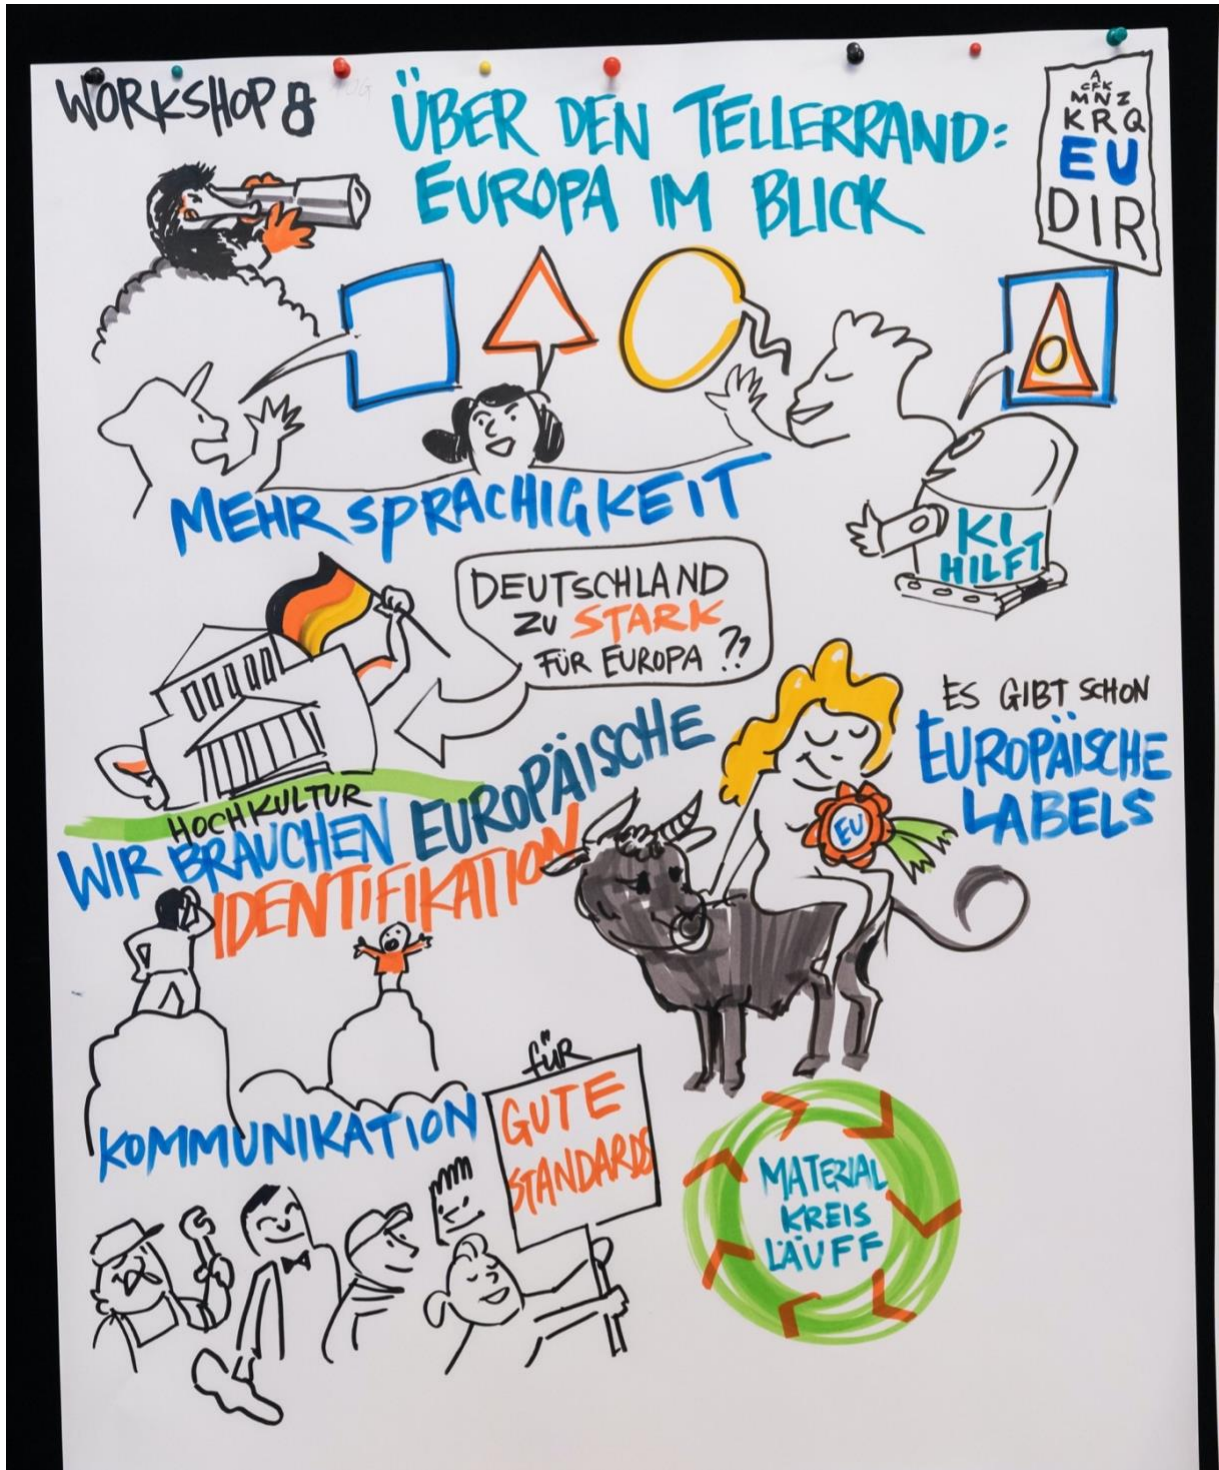 WORKSHOP 8
ÜBER DEN TELLERRAND:
EUROPA IM BLICK
A
CFK
MNZ
KRQ
EU
DIR
MEHRSPRACHIGKEIT
KI
HILFT
DEUTSCHLAND
ZU STARK
FÜR EUROPA ??
HOCHKULTUR
WIR BRAUCHEN EUROPÄISCHE
IDENTIFIKATION
ES GIBT SCHON
EUROPÄISCHE
LABELS
EU
KOMMUNIKATION
für
GUTE
STANDARDS
MATERIAL
KREIS
LÄUFF